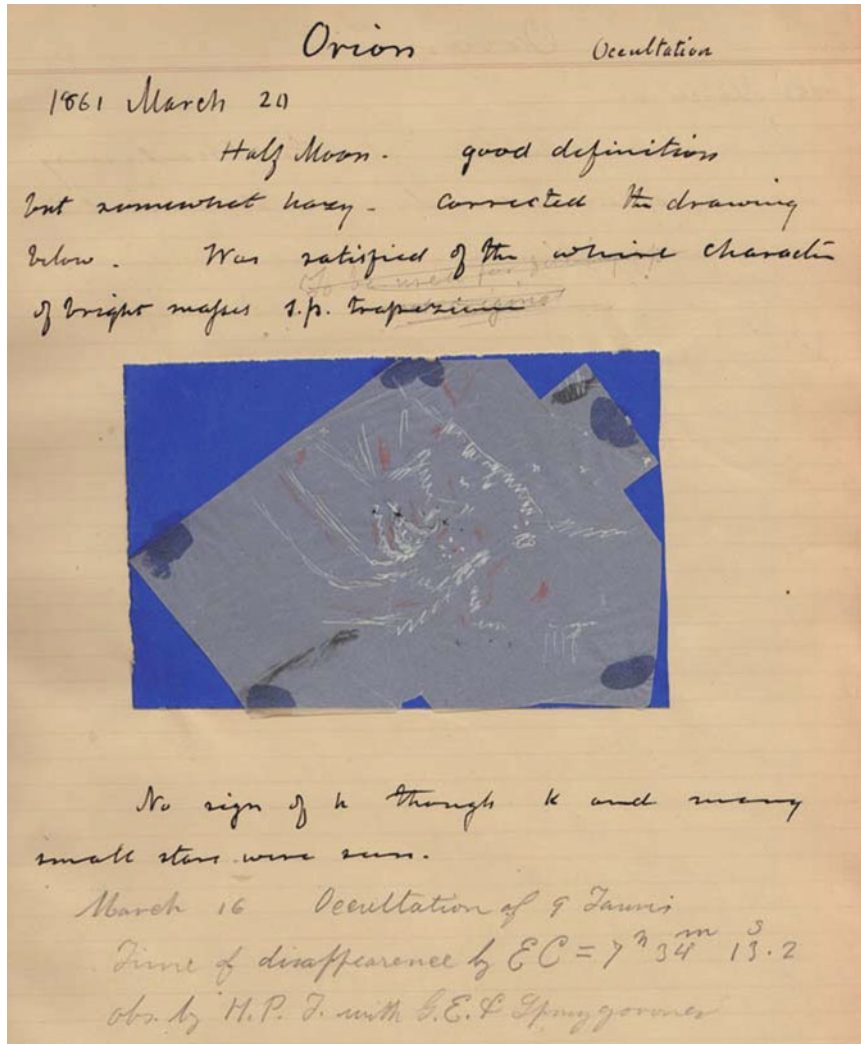 Orion Occultation
1861 March 20
Half Moon. good definition
but somewhat hazy. Corrected the drawing
below. Was satisfied of the character
to be used for
of bright masses s.p.
No sign of h though k and many
small stars were seen.
March 16 Occultation of 9 Tauris
Time of disappearence by EC = 7h 34m 13.2s
obs. by H.P.T. with G.E. & Spring governor